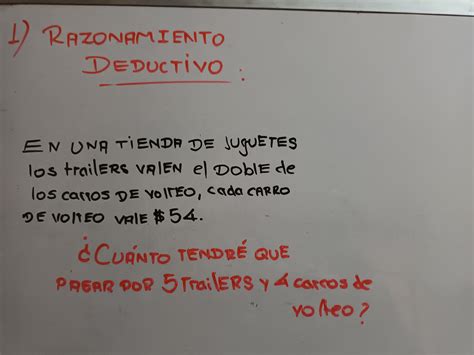 1) RAZONAMIENTO
DEDUCTIVO :
EN UNA TIENDA DE JUGUETES
los trailers valen el DOBLE de
los carros DE VOLTEO, cada CARRO
DE VOLTEO VALE $54.
¿CUÁNTO TENDRÉ QUE
PAGAR POR 5 TRAILERS Y 4 carros de
volteo?